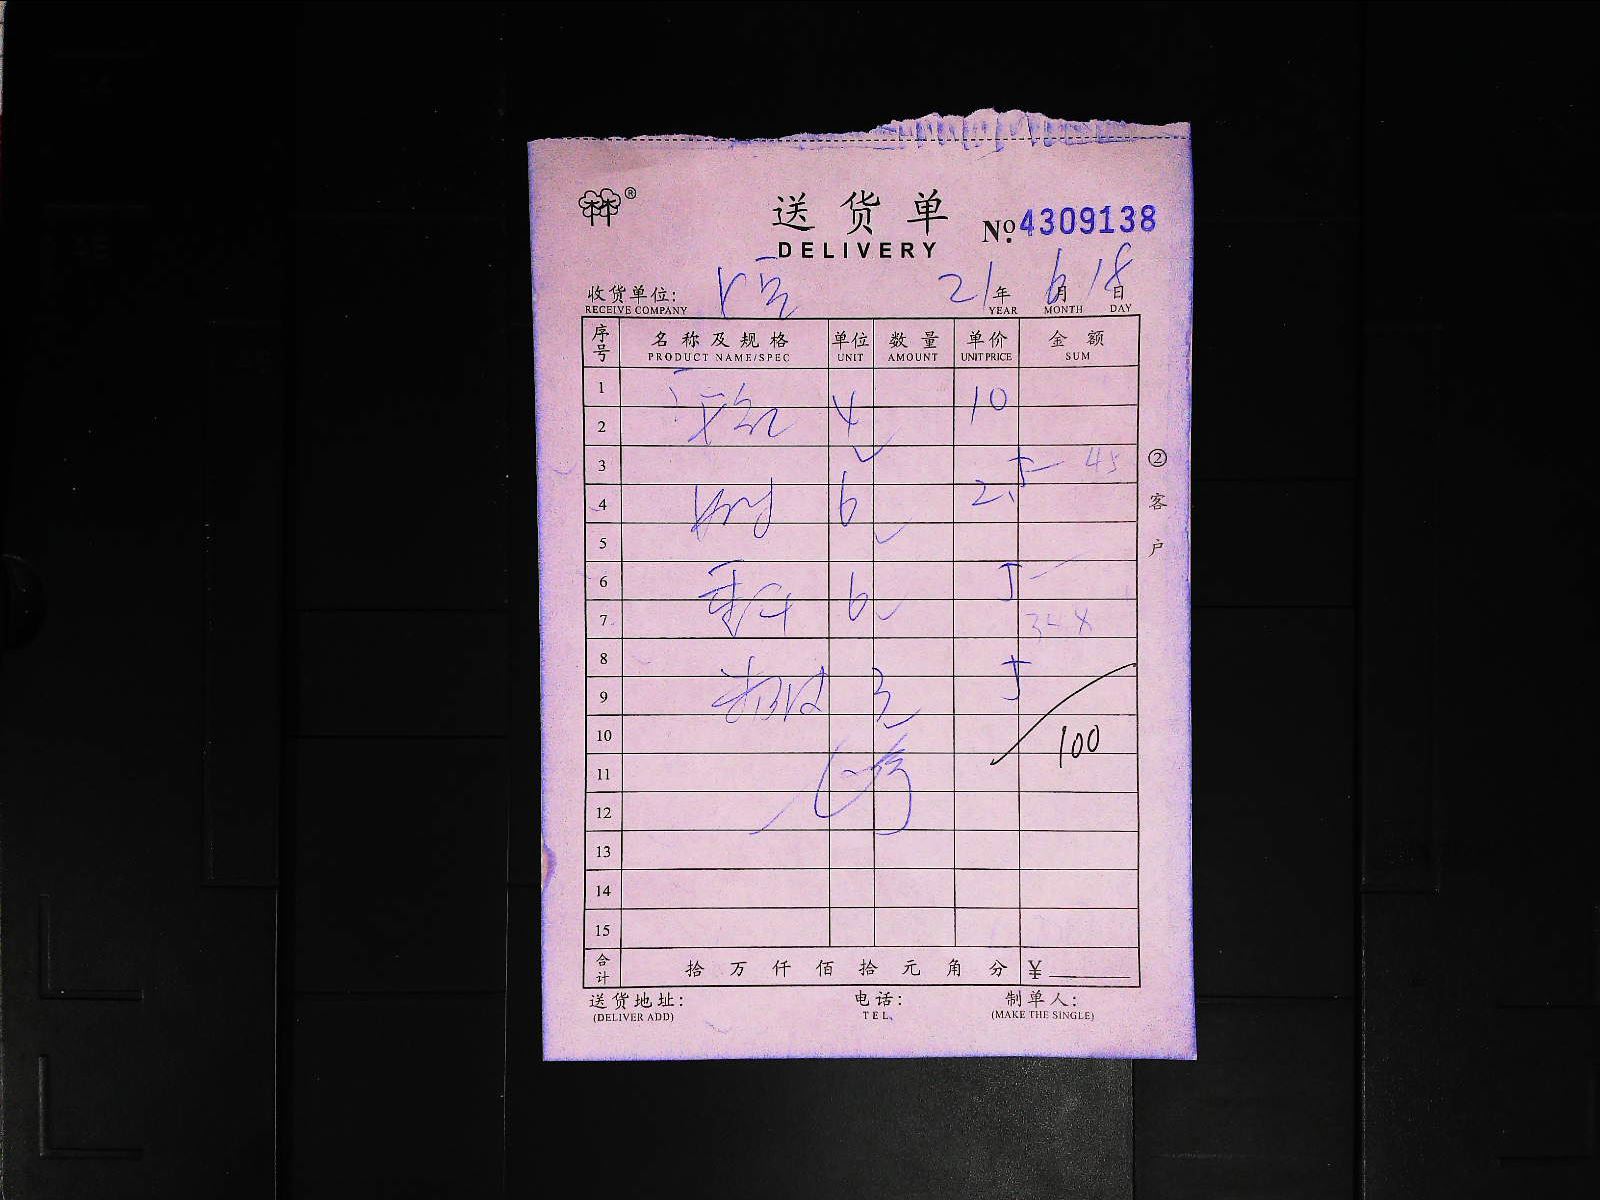 ®
送货单
DELIVERY
No. 4309138
收货单位: 21年6月18日
RECEIVE COMPANY YEAR MONTH DAY
序号 名称及规格 单位 数量 单价 金额
PRODUCT NAME/SPEC UNIT AMOUNT UNIT PRICE SUM
1
4 10
2
3
45
4 6 2.5
5
6
6 5
7
8
5
9 3
10
100
11
12
13
14
15
合计 拾万仟佰拾元角分 ¥
送货地址: 电话: 制单人:
(DELIVER ADD) TEL (MAKE THE SINGLE)
②客户